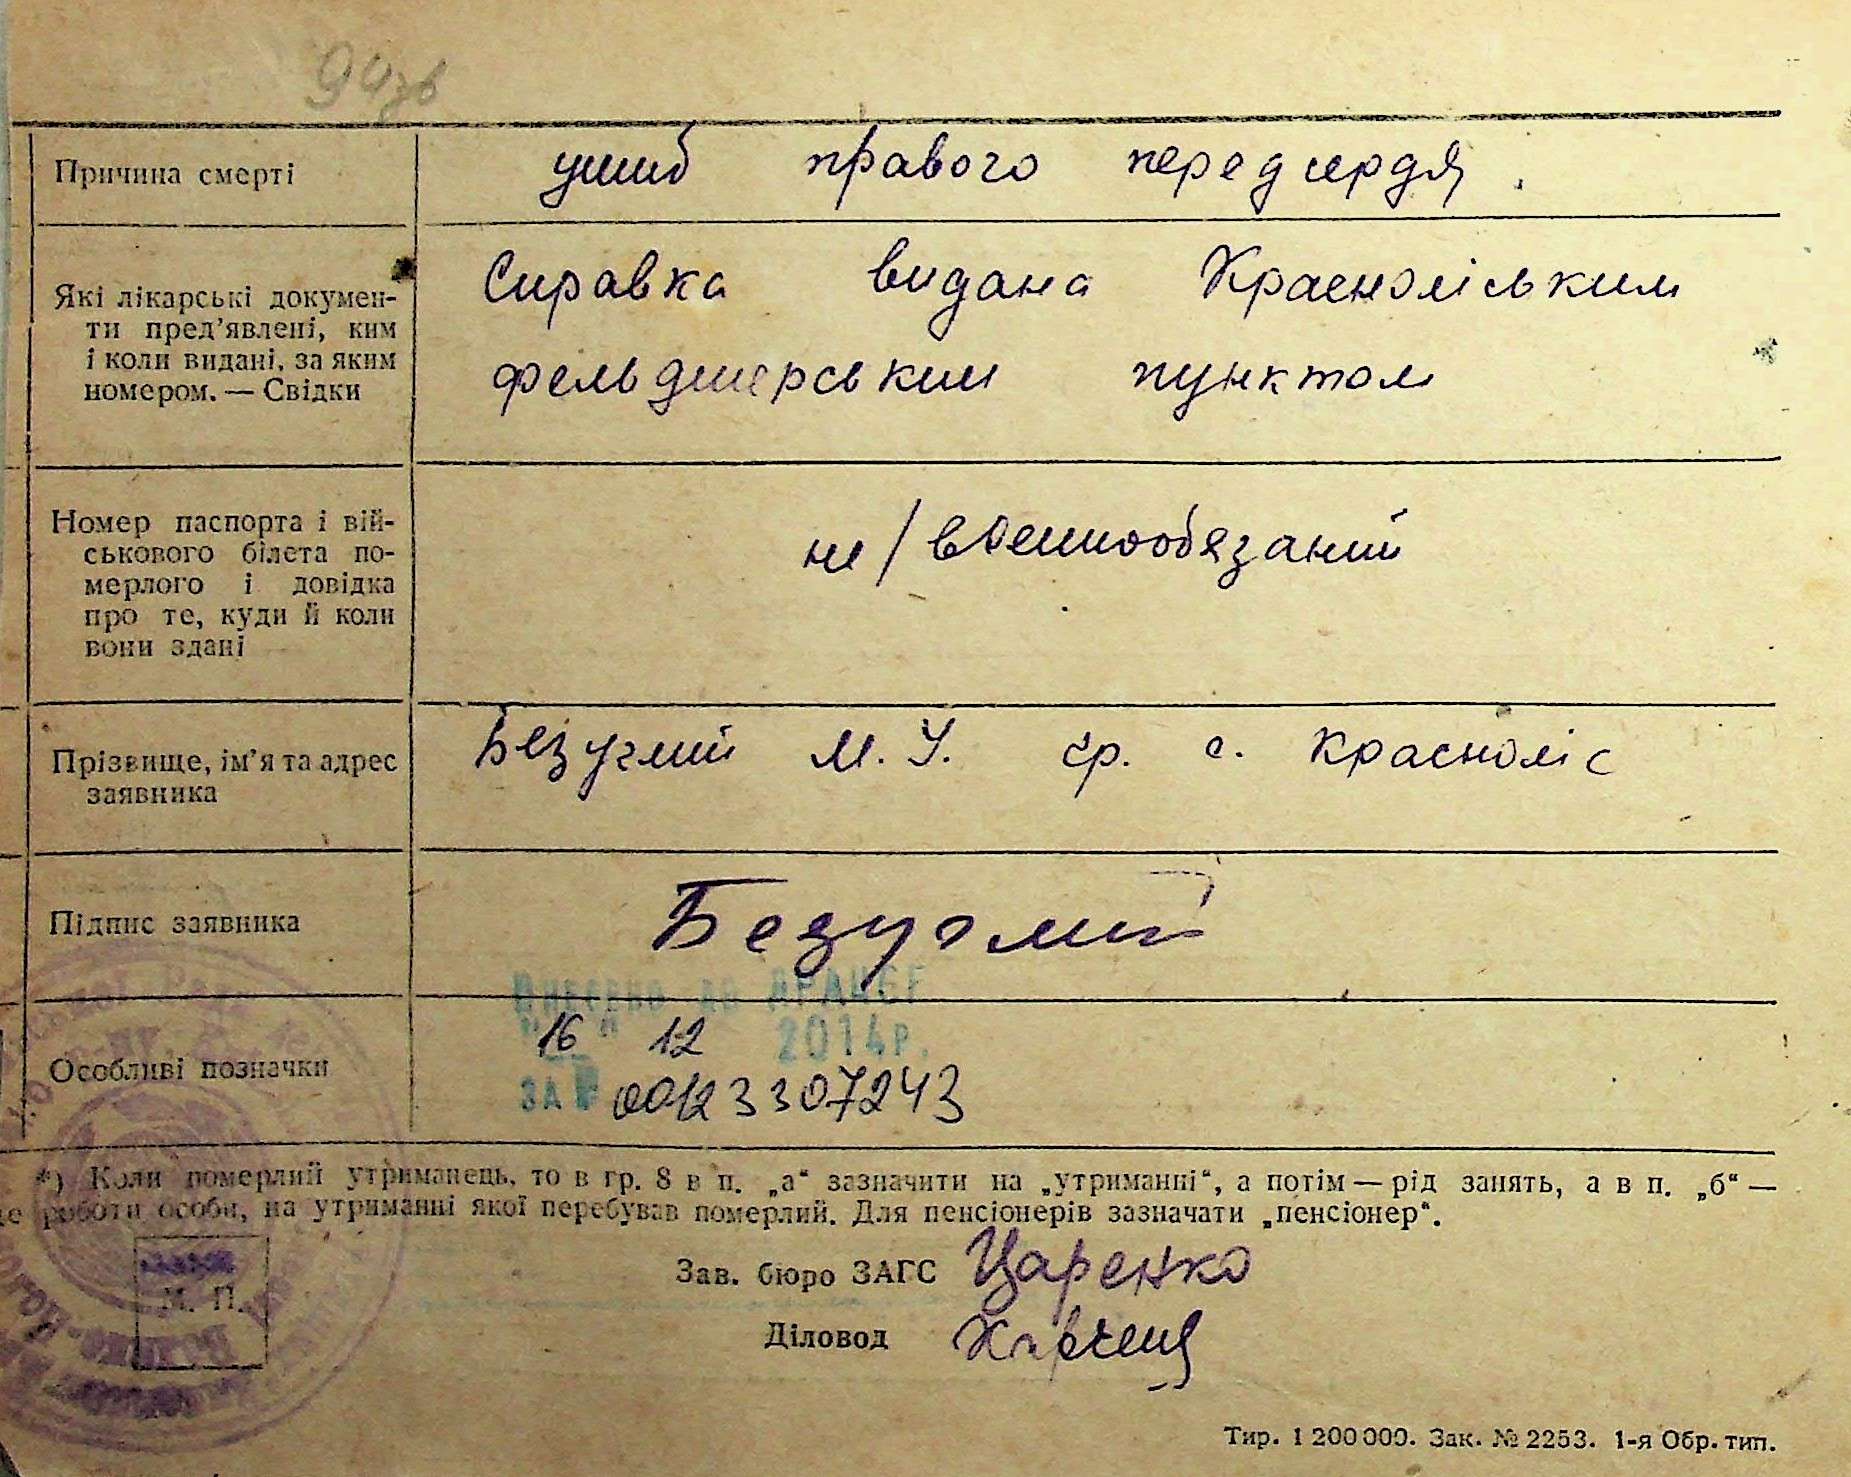 94зв
Причина смерті
ушиб правого передсердя
Які лікарські докумен-
ти пред'явлені, ким
і коли видані, за яким
номером. — Свідки
Справка видана Краснолїським
фельдшерським пунктом
Номер паспорта і вій-
ськового білета по-
мерлого і довідка
про те, куди й коли
вони здані
не/военнообязаний
Прізвище, ім'я та адрес
заявника
Безуглий М. У. гр. с. Красноліс
Підпис заявника
Безуглий
Внесено до ДРАЦСГ
"16" 12 2014р.
Особливі позначки
ЗА № 00123307243
*) Коли померлий утриманець, то в гр. 8 в п. „а“ зазначити на „утриманні“, а потім — рід занять, а в п. „б“ —
роботи особи, на утриманні якої перебував померлий. Для пенсіонерів зазначати „пенсіонер“.
Зав. бюро ЗАГС Царенко
М. П.
Діловод
Тир. 1 200 000. Зак. № 2253. 1-я Обр. тип.